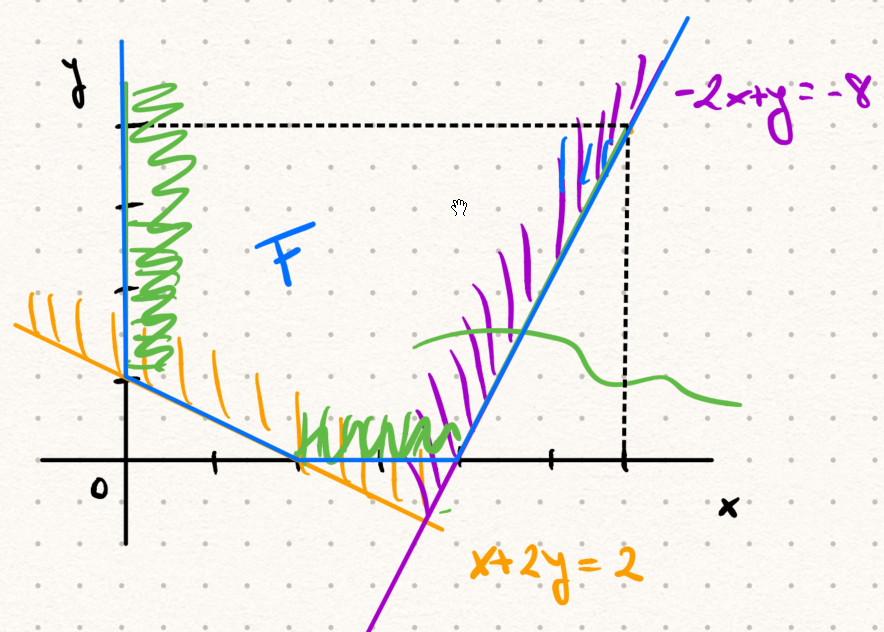 y
-2x+y=-8
F
0
x
x+2y=2